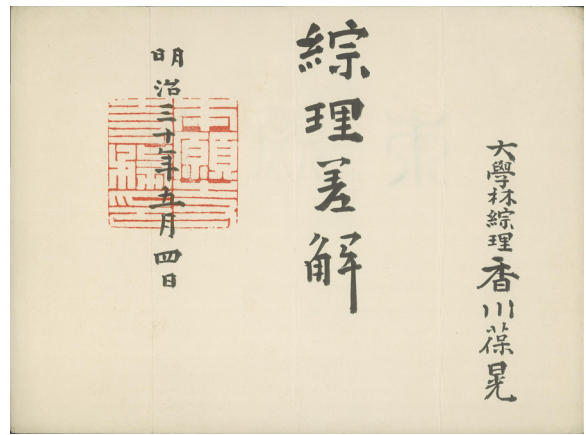 大學林綜理香川葆晃
綜理差解
明治三十年五月四日